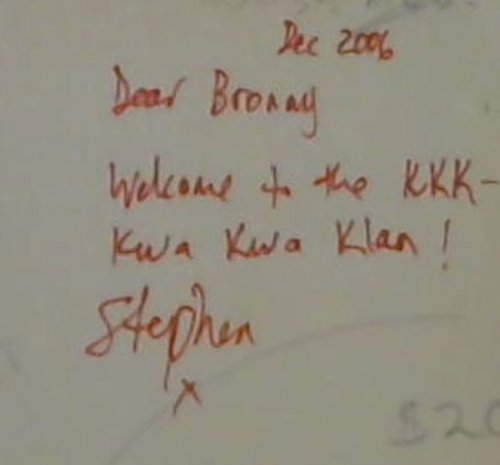 Dec 2006
Dear Bronny
Welcome to the KKK-
Kwa Kwa Klan!
Stephen
x